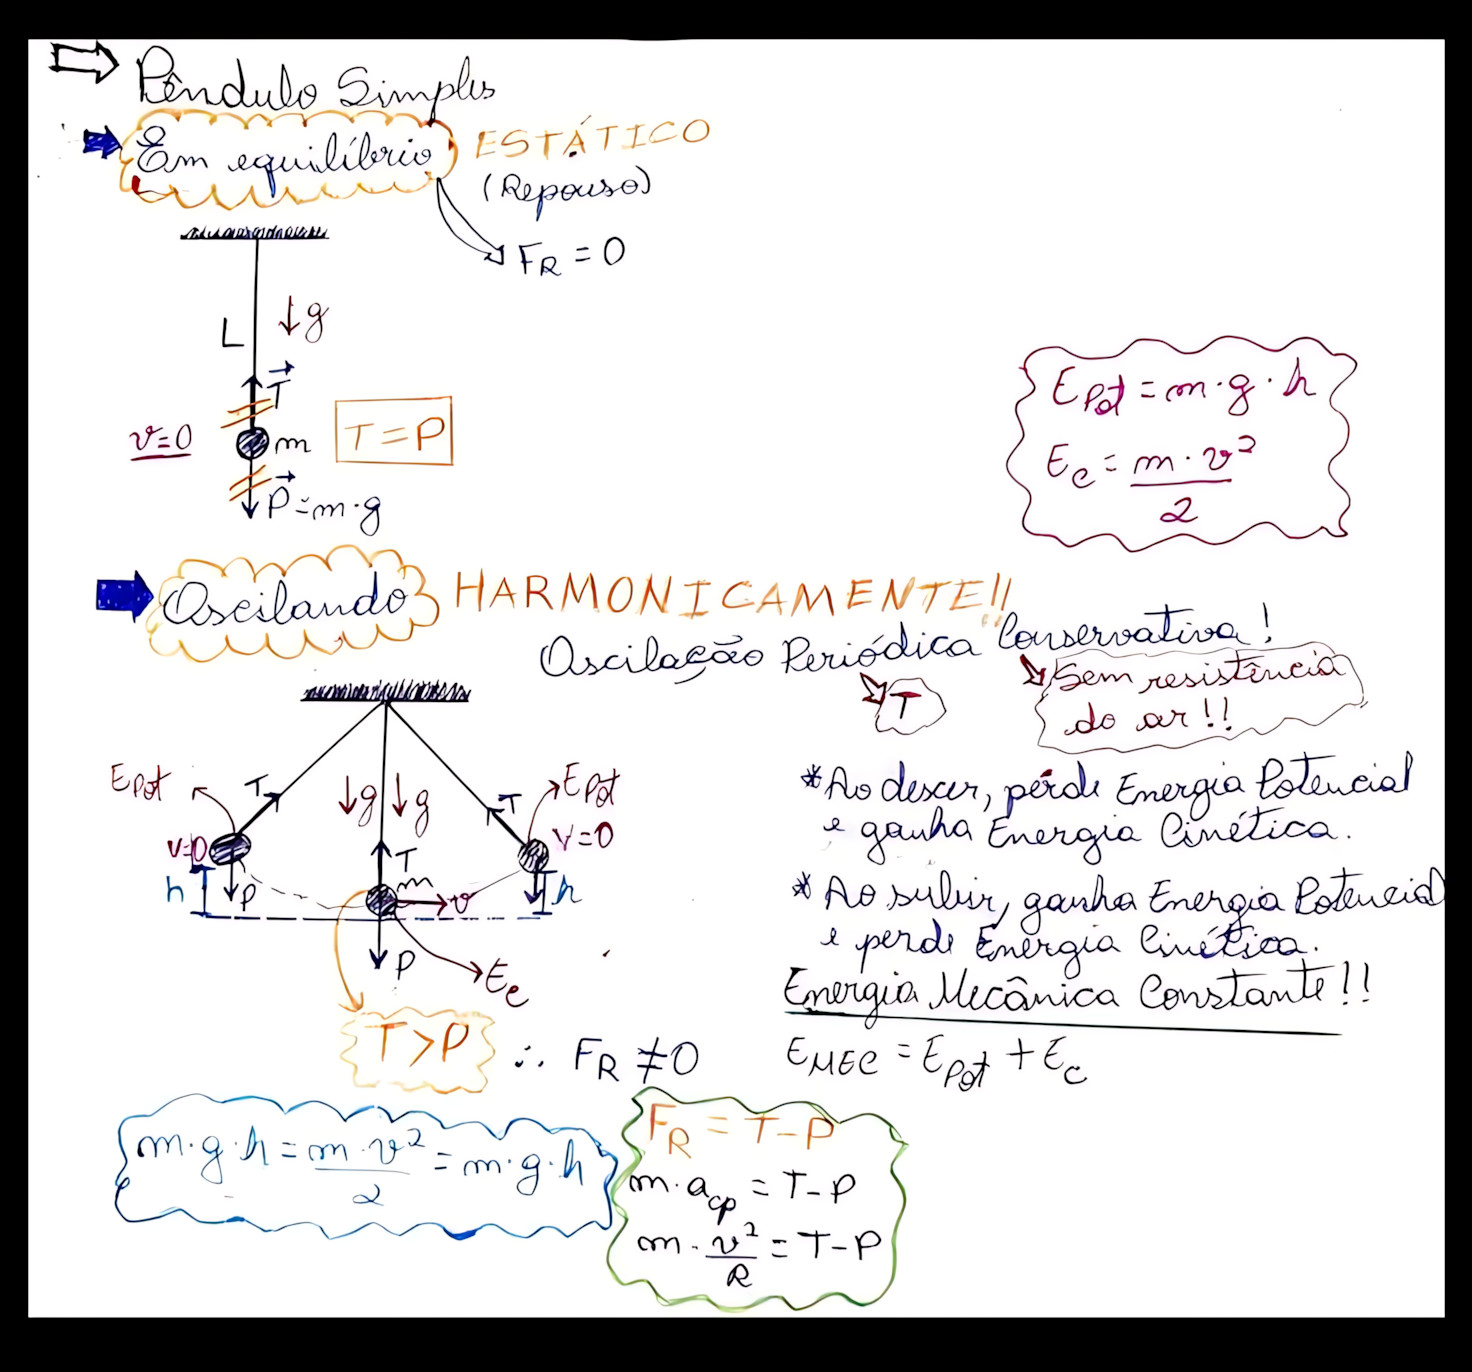 Pêndulo Simples
Em equilíbrio ESTÁTICO
(Repouso)
F_R = 0
L ↓g
T
v=0 m T=P
P=m·g
E_Pot = m·g·h
E_c = m·v²/2
Oscilando HARMONICAMENTE!!
Oscilação Periódica Conservativa!
T
Sem resistência
do ar!!
E_Pot T ↓g ↓g T E_Pot
v=0 T v=0
h P m v h
P E_c
*Ao descer, perde Energia Potencial
e ganha Energia Cinética.
*Ao subir, ganha Energia Potencial
e perde Energia Cinética.
Energia Mecânica Constante!!
E_MEC = E_Pot + E_c
T>P ∴ F_R ≠ 0
m·g·h = m·v²/2 = m·g·h
F_R = T-P
m·a_cp = T-P
m·v²/R = T-P